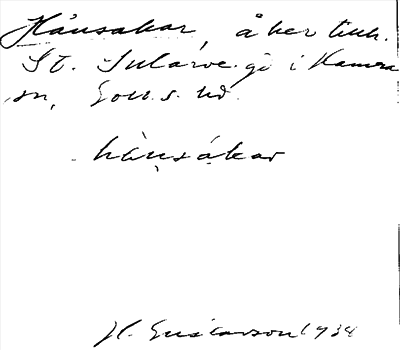 Hånsakar, åker tillh.
St. Sularve gd i Hamra
sn, Gotl. s. hd.
hànsákar
H. Gustavson 1934